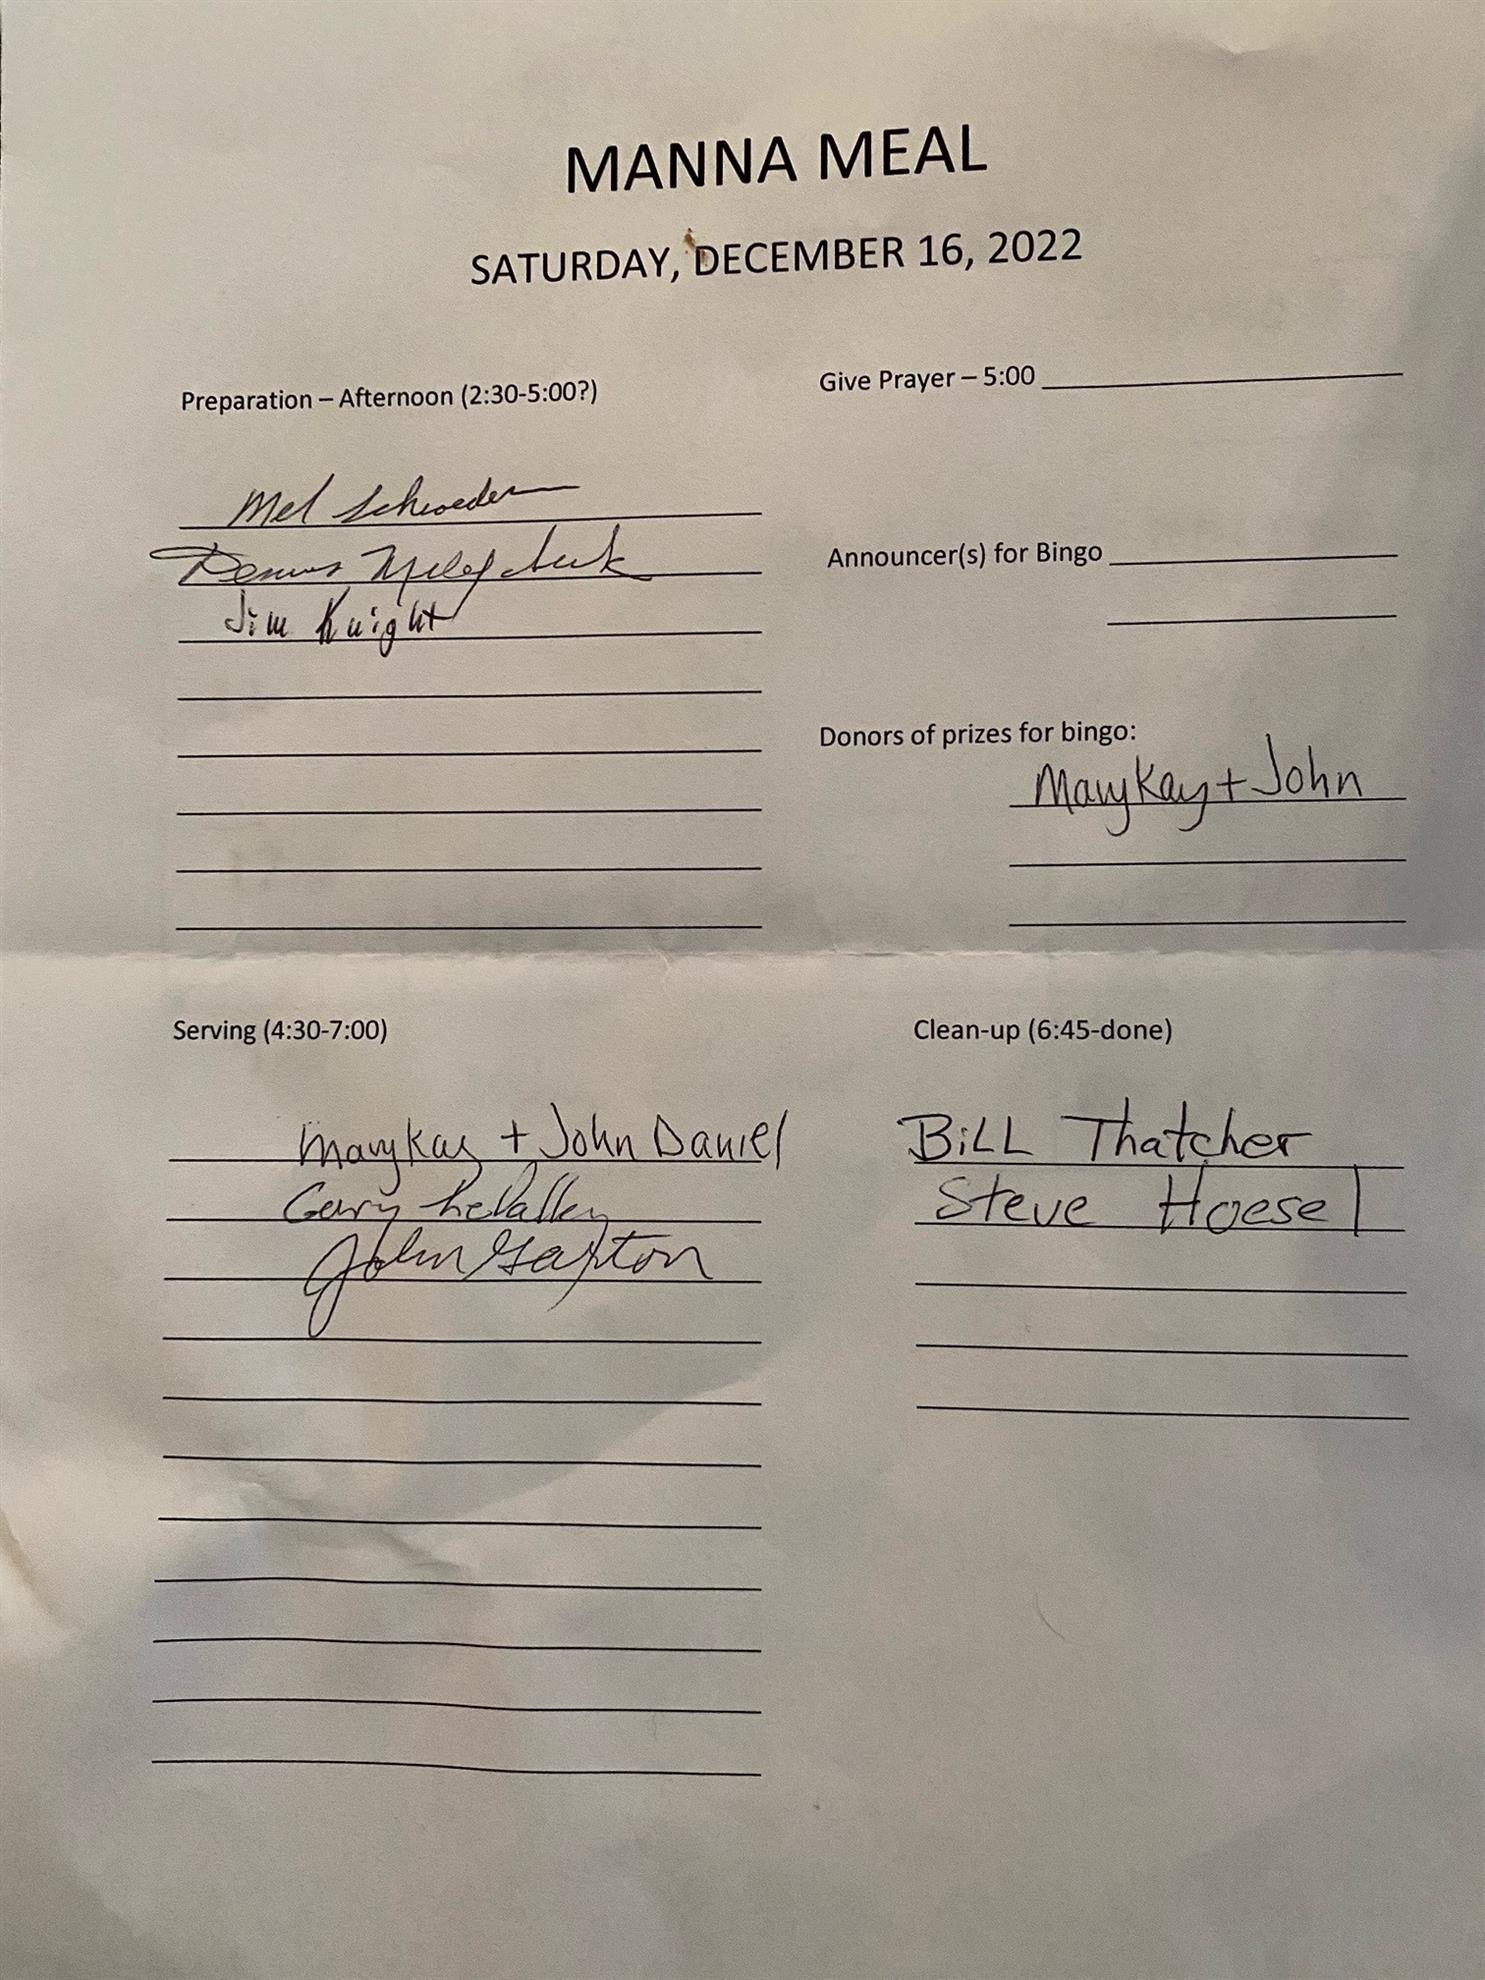 MANNA MEAL
SATURDAY, DECEMBER 16, 2022
Preparation – Afternoon (2:30-5:00?)
Mel Schroeder
Dennis
Jim Knight
Give Prayer – 5:00
Announcer(s) for Bingo
Donors of prizes for bingo:
MaryKay + John
Serving (4:30-7:00)
MaryKay + John Daniel
Gary
John
Clean-up (6:45-done)
BiLL Thatcher
Steve Hoesel